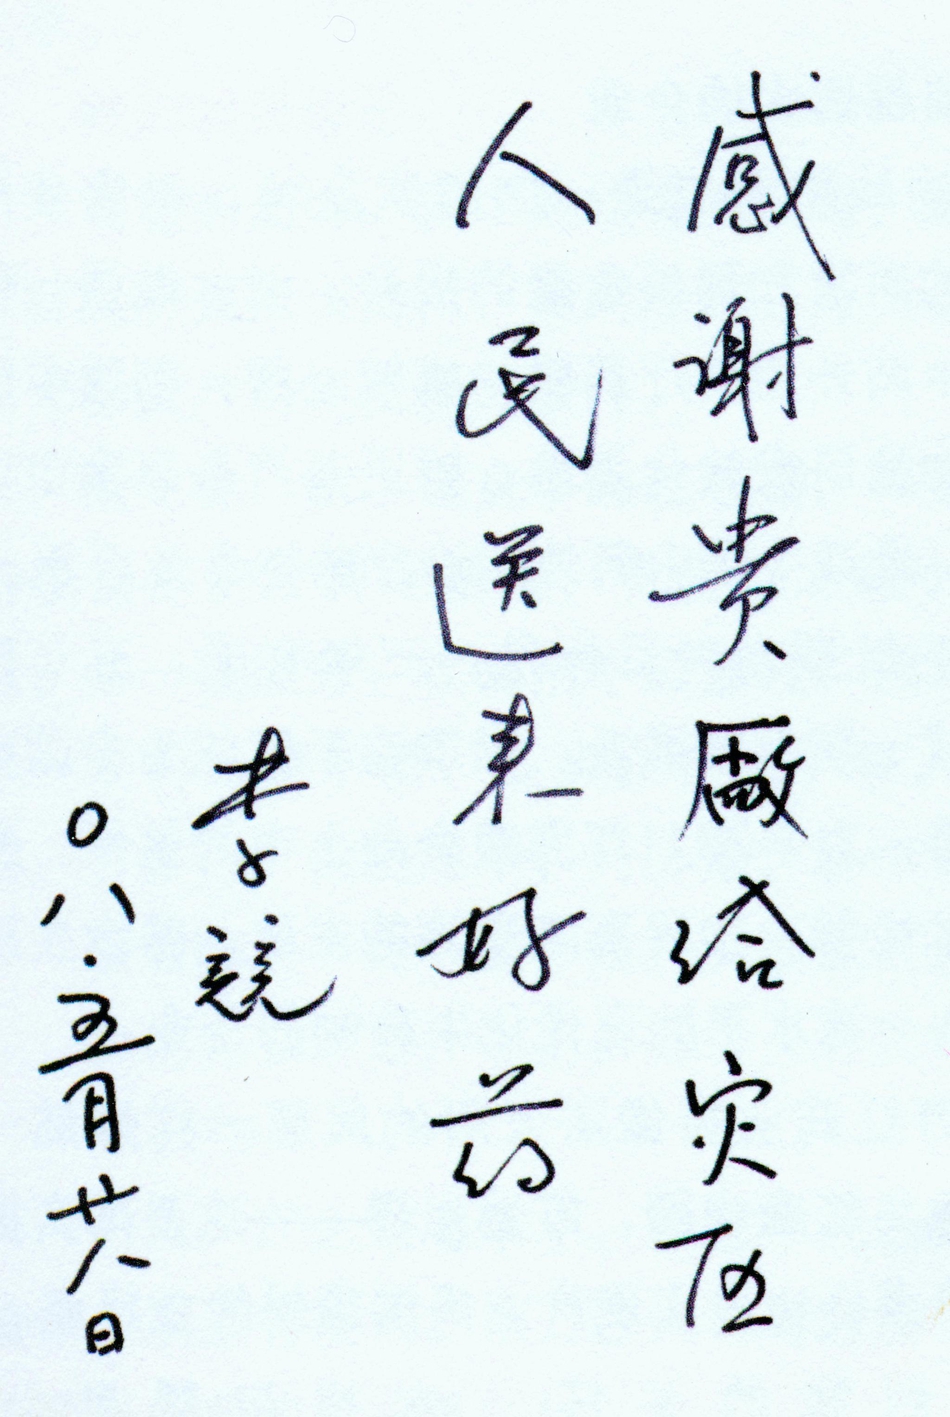 感谢贵厰给灾区
人民送来好药
李競
〇八.五月廿八日